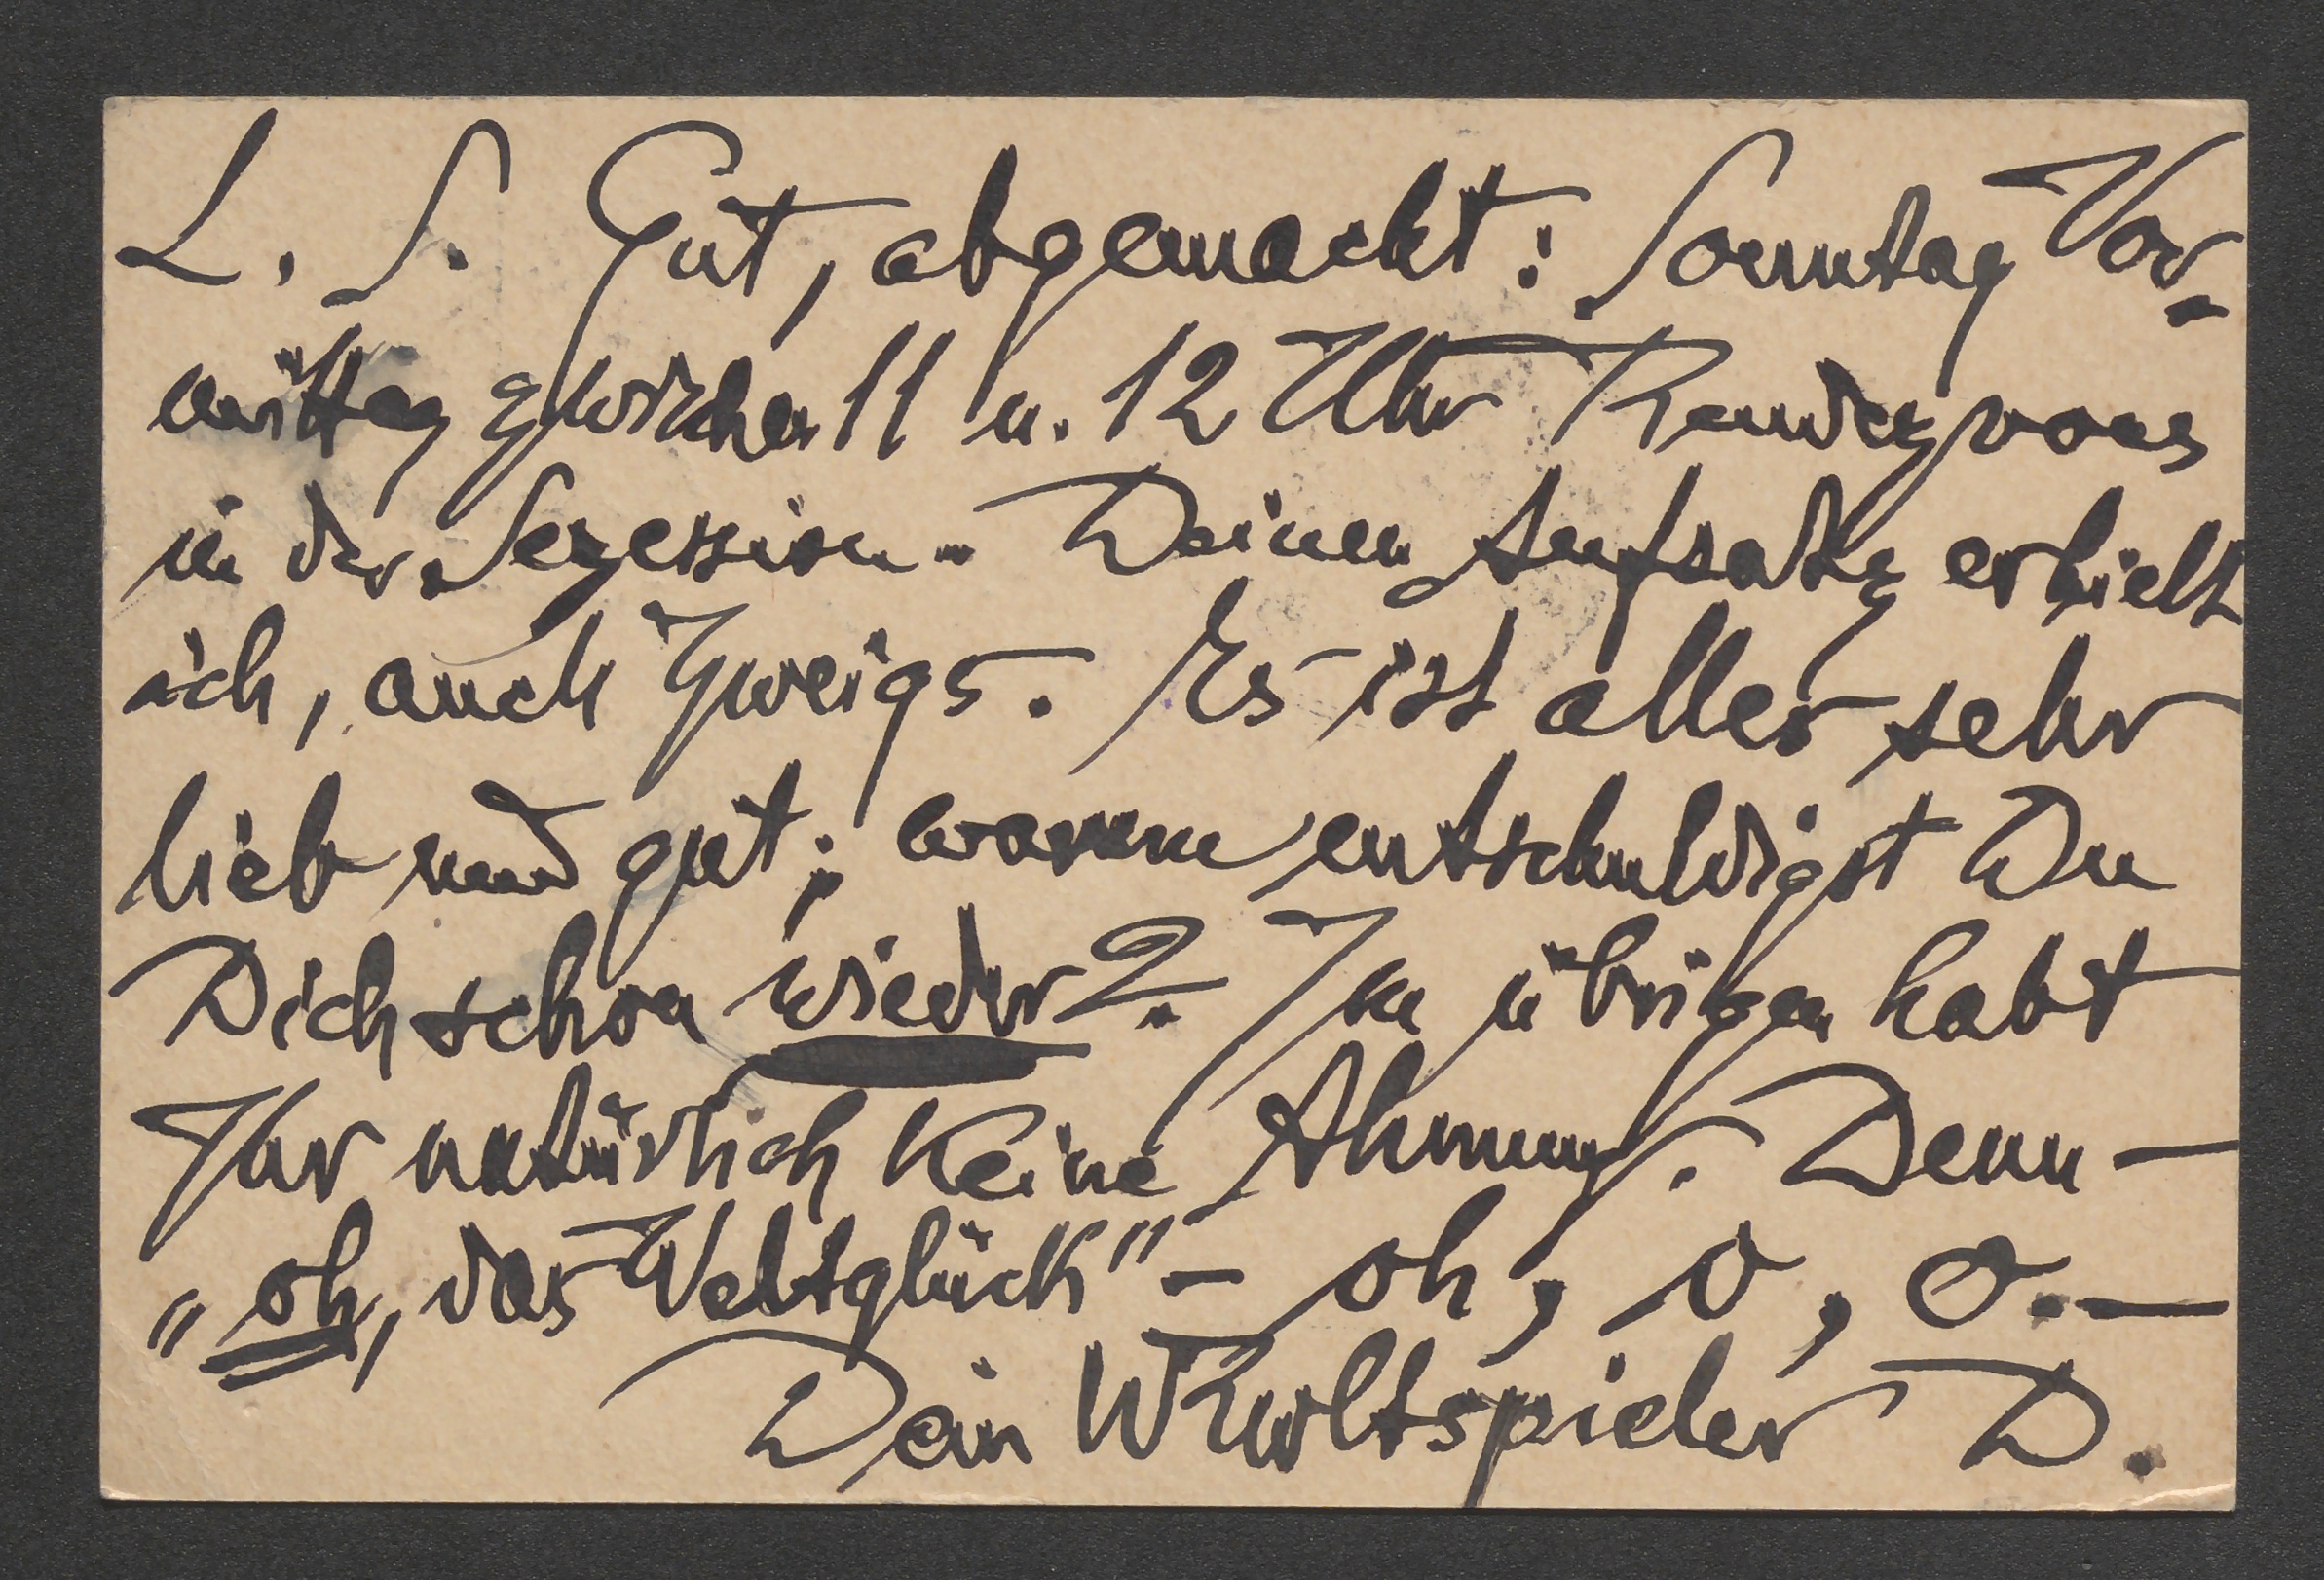 L. S. Gut, abgemacht: Sonntag Vor-
mittag zwischen 11 u. 12 Uhr Rendezvous
in der Sezession. – Deinen Aufsatz erhielt
ich, auch Zweigs. Es ist alles sehr
lieb und gut; warum entschuldigst Du
Dich schon wieder? Im übrigen habt
Ihr natürlich keine Ahnung. Denn –
„oh, das Weltglück" – oh, o, o. –
Dein D.